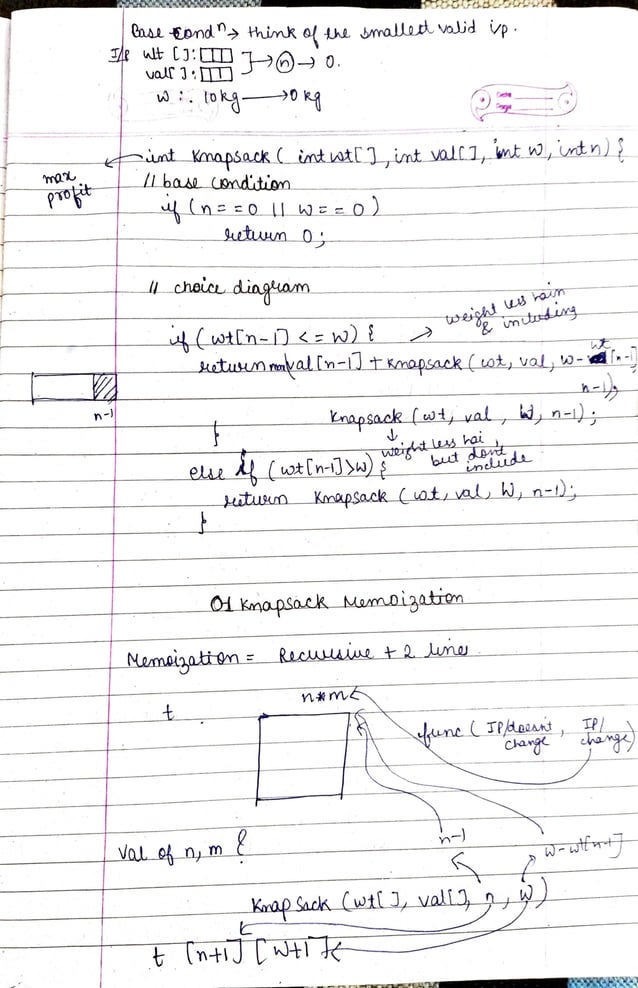 Base Condⁿ → think of the smallest valid i/p.
I/p wt []:
val[]: → n → 0.
W :. 10kg → 0 kg
int Knapsack ( int wt[], int val[], int W, int n) {
max profit
// base condition
if (n==0 || W==0)
return 0;
// choice diagram
if (wt[n-1] <= W) { → weight less hain & including
return max(val[n-1] + Knapsack (wt, val, W-wt[n-1]
n-1),
n-1
Knapsack (wt, val, W, n-1);
} weight less hai, but dont include
else if (wt[n-1]>W) {
return Knapsack (wt, val, W, n-1);
}
01 Knapsack Memoization
Memoization = Recursive + 2 lines
n*m
t
func ( IP/doesn't change, IP/change)
n-1
W-wt[n-1]
val of n, m {
Knap Sack (wt[], val[], n, W)
t [n+1] [W+1]